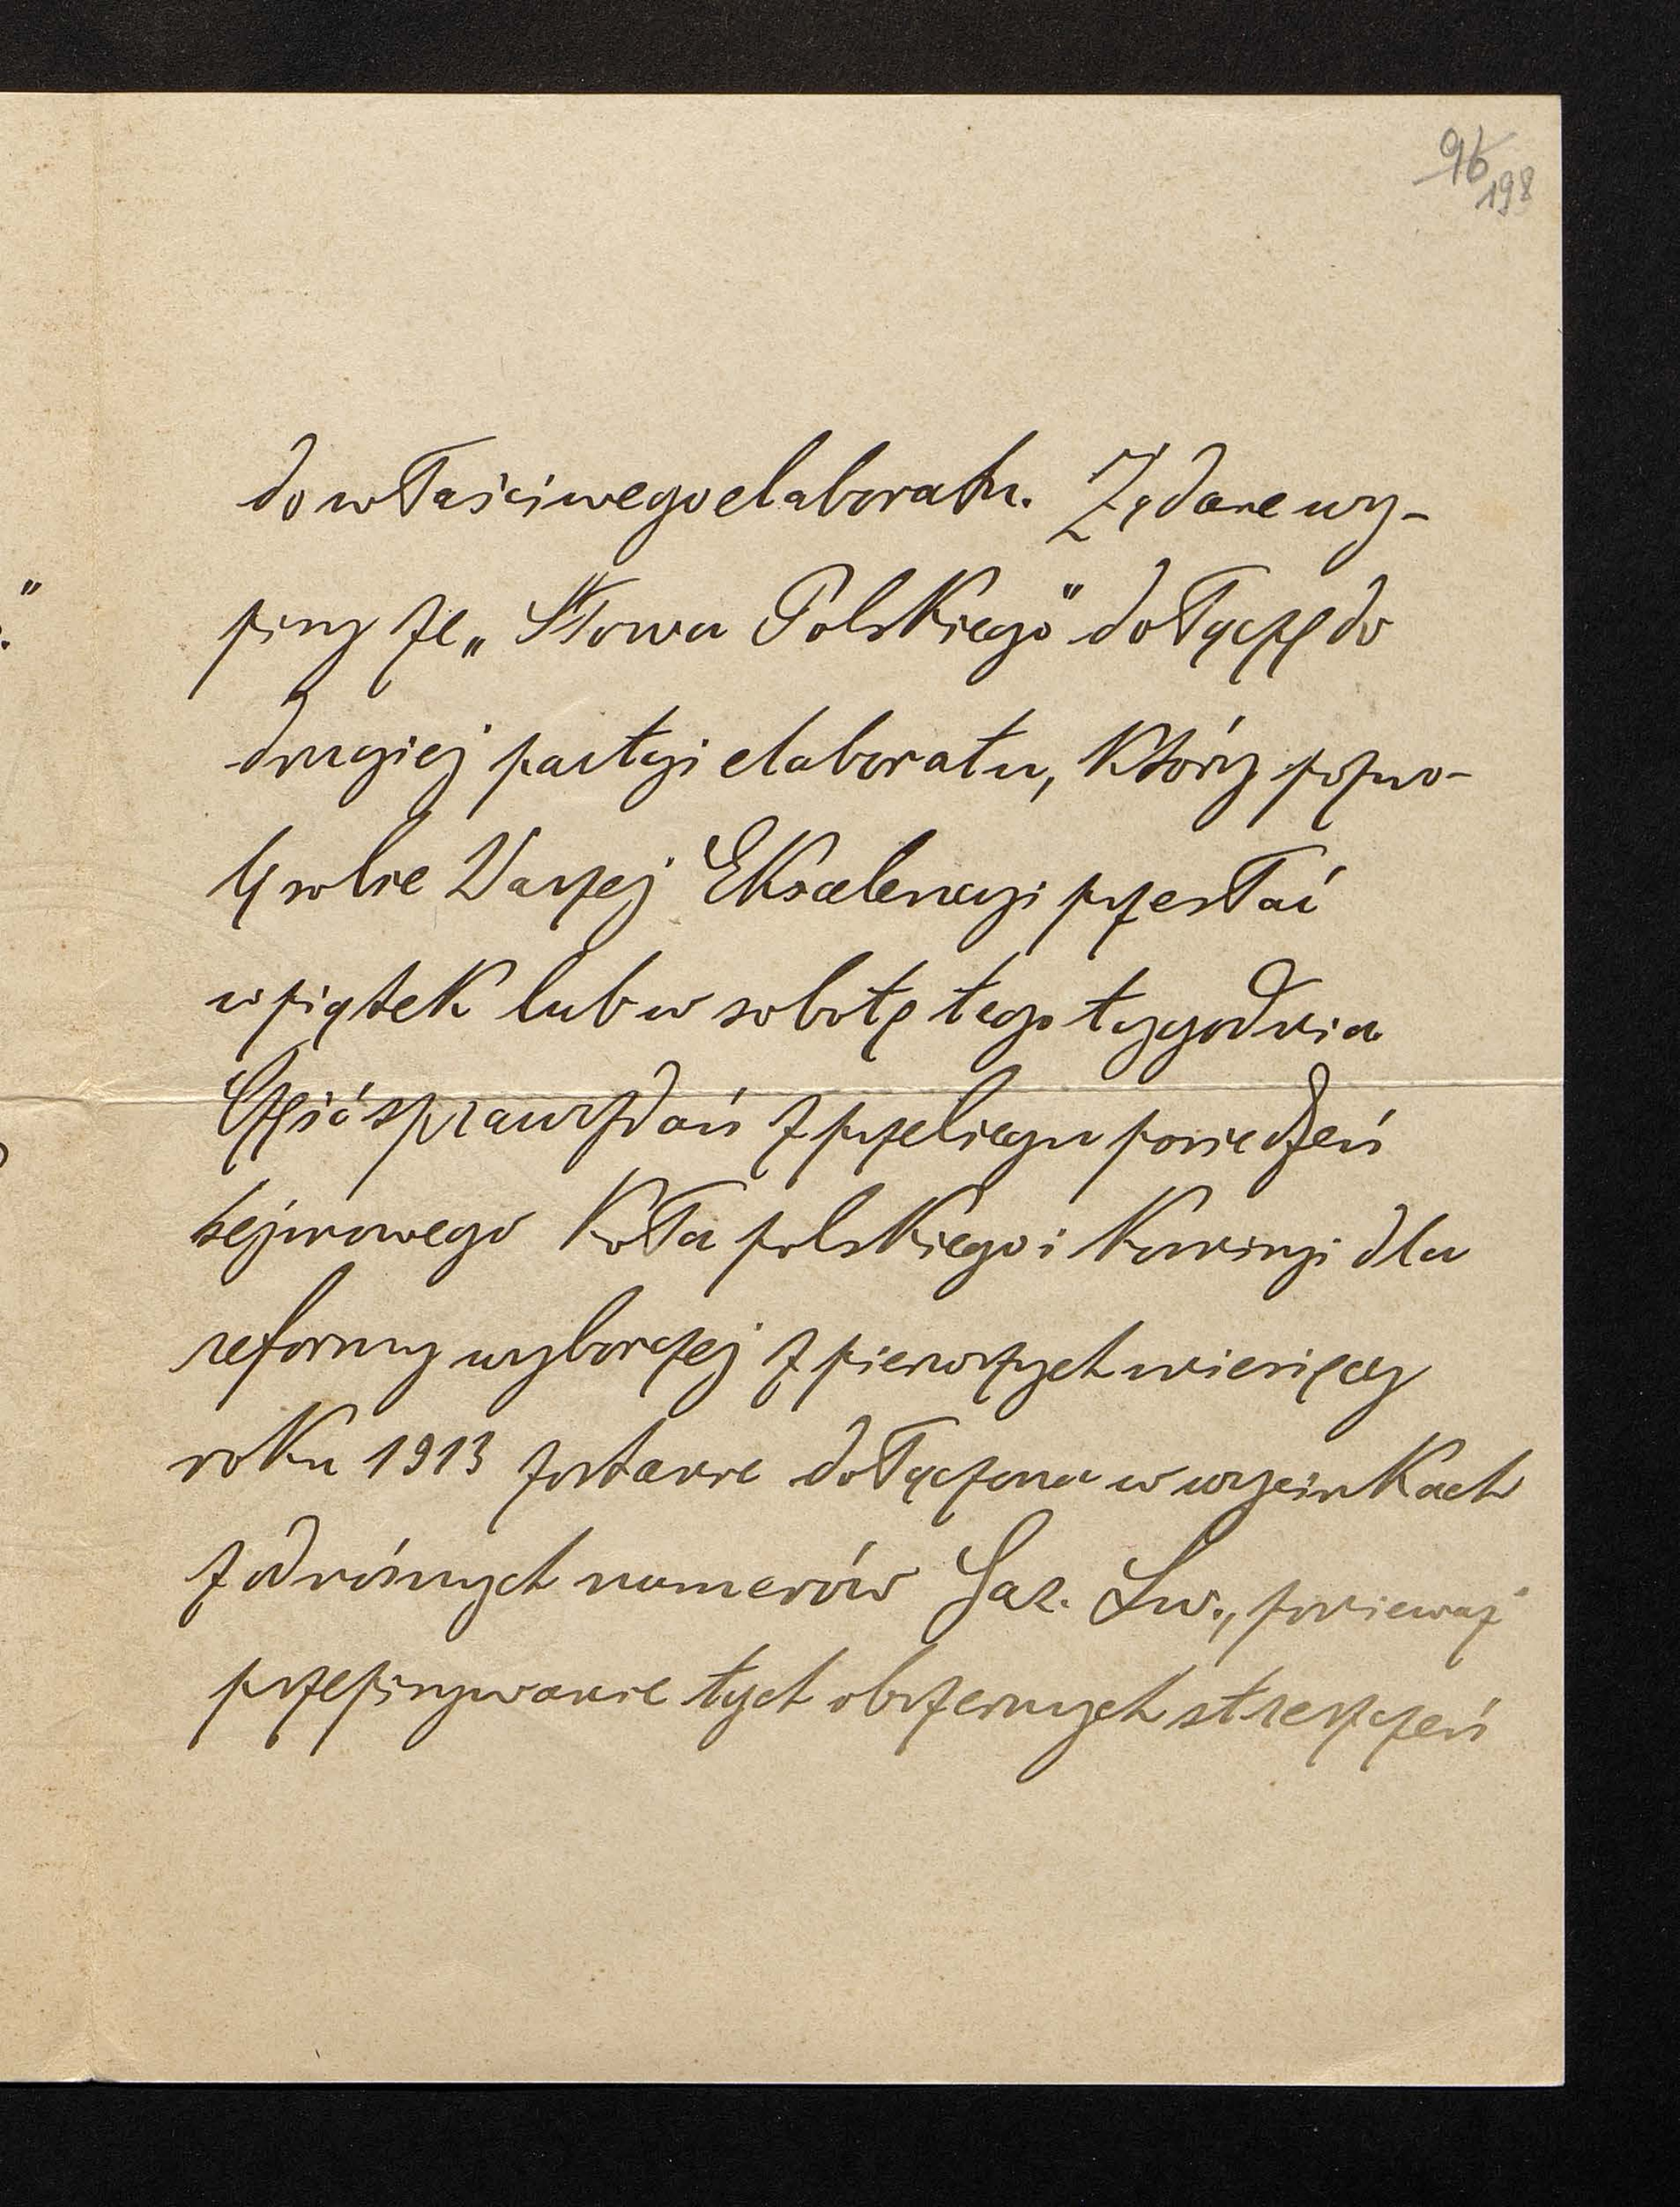 96
198
do właściwego elaboratu. Żądane wy-
pisy ze „Słowa Polskiego" dołączę do
drugiej partyi elaboratu, który pozwo-
lę sobie Waszej Ekscelencyi przesłać
w piątek lub w sobotę tego tygodnia
Część sprawozdań z przebiegu posiedzeń
sejmowego Koła polskiego i Komisyi dla
reformy wyborczej z pierwszych miesięcy
roku 1913 zostanie dołączona w wycinkach
z odnośnych numerów Gaz. Lw., ponieważ
przepisywanie tych obszernych streszczeń